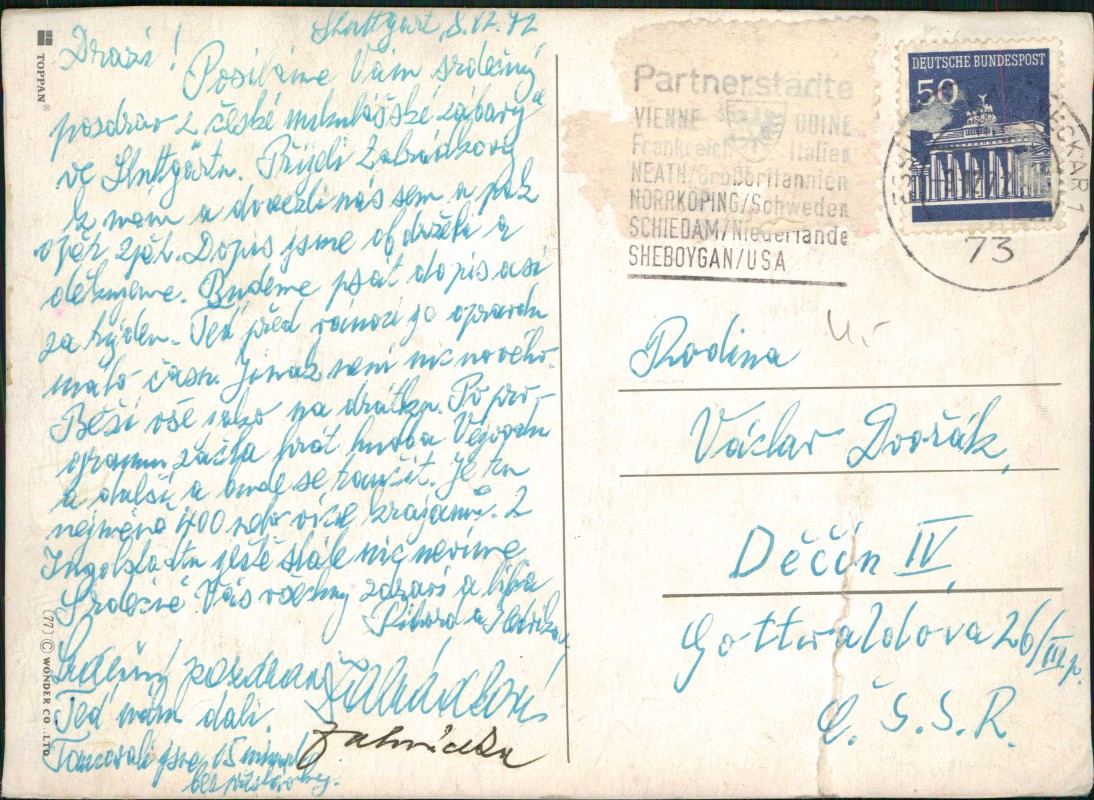 Stuttgart, 8.12.72
Drazí!
Posíláme Vám srdečný
pozdrav z české mikulášské zábavy
ve Stuttgartu. Přijeli Zahrádkovi
k nám a dovezli nás sem a pak
opět zpět. Dopis jsme obdrželi a
děkujeme. Budeme psát dopis asi
za týden. Teď před vánoci je opravdu
málo času. Jinak není nic nového.
Běží vše jako na drátku. Po pro-
gramu začla hrát hudba Vejvodu
a další a bude se tančit. Je tu
nejméně 400 nebo více krajanů. Z
Ingolstadtu ještě stále nic nevíme
Srdečně Vás všechny zdraví a líbá
Rihard a
Srdečný pozdrav Zahrádkovi
Teď nám dali.
Zahrádka
Tancovali jsme 15 minut
bez přestávky.
TOPPAN®
(77) © WONDER CO.,LTD.
Partnerstädte
VIENNE UDINE
Frankreich Italien
NEATH/Großbritannien
NORRKÖPING/Schweden
SCHIEDAM/Niederlande
SHEBOYGAN/USA
DEUTSCHE BUNDESPOST
50
NECKAR 1
73
Rodina
Václav Dvořák,
Děčín IV,
Gottwaldova 26/III.p.
Č.S.S.R.